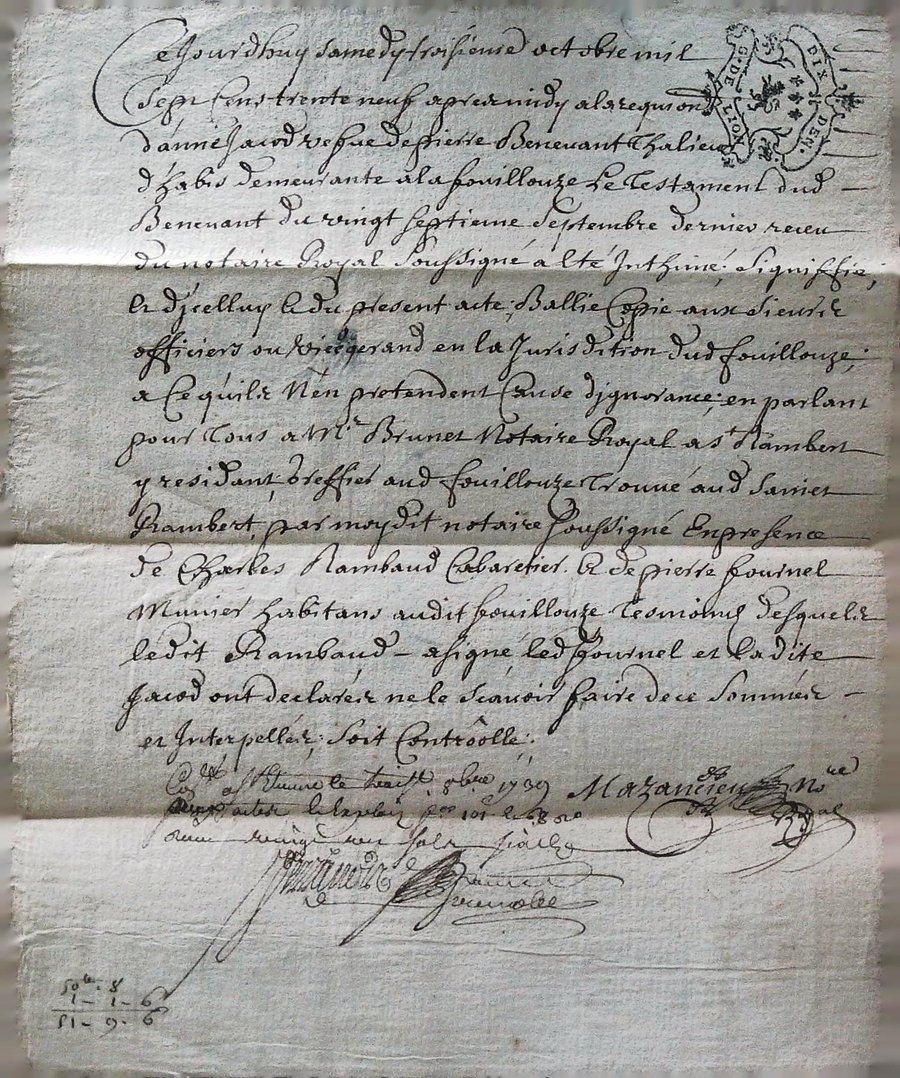 Ce Jourdhuy samedy troisieme octobre mil
Sept Cens trente neuf apres midy a la requion
d'anne Jacod vefue de pierre Beneuant Thalieur
d'habis demeurante a la fouillouze Le Testament dud
Beneuant du vingt septieme Septembre dernier receu
du notaire Royal Soussigné a esté Inthimé, Signiffié;
et d'jcelluy & du present acte; Ballié Copie aux Sieurs
officiers ou vicegerand en la Jurisdition dud fouillouze;
a Ce quils N'en pretendent Cause d'jgnorance; en parlant
pour Tous a Mr Brunet Notaire Royal a st Rambert
y residant, Greffier aud fouillouze Trouué aud Sainct
Rambert, par moydit notaire soussigné En presence
de Charles Rambaud Cabaretier. & de pierre fournel
Munier habitans audit fouillouze Tesmoins desquels
ledit Rambaud a signé, led fournel et la dite
Jacod ont declarés ne le Scauoir faire de ce Sommés
et Interpellés; Soit Contrôollé;
8bre 1739 Mazancieu Nore
Royal
sols
50lt. 8
1 - 1 - 6
51 - 9 - 6
G. DE LION
DIX DEN.